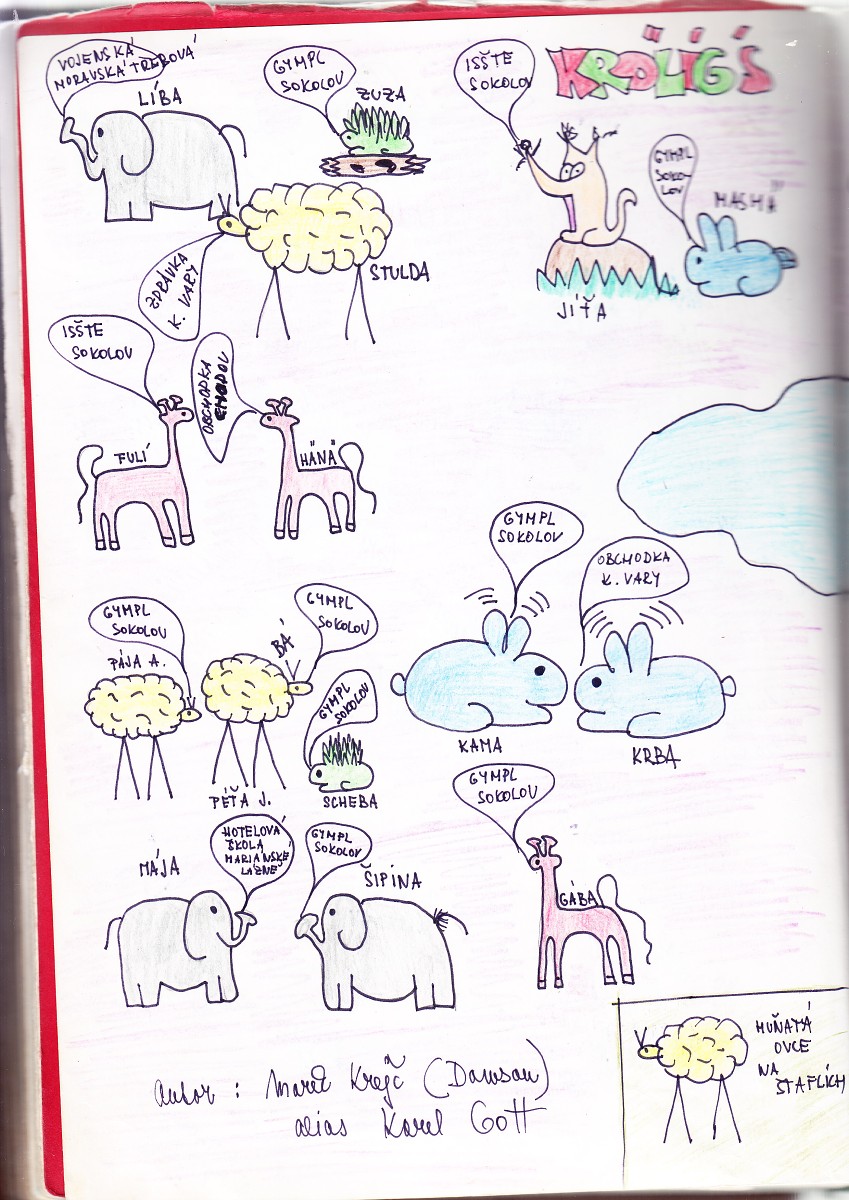 KRÖLÍG'S
VOJENSKÁ
MORAVSKÁ TŘEBOVÁ
LÍBA
GYMPL
SOKOLOV
ZUZA
ISŠTE
SOKOLOV
JÍŤA
GYMPL
SOKO-
LOV
MASHA
ZDRÁVKA
K. VARY
STULDA
ISŠTE
SOKOLOV
FULÍ
OBCHODKA
CHODOV
HÄNÄ
GYMPL
SOKOLOV
KAMA
OBCHODKA
K. VARY
KRBA
GYMPL
SOKOLOV
PÁJA A.
GYMPL
SOKOLOV
BÁ
PÉŤA J.
GYMPL
SOKOLOV
SCHEBA
GYMPL
SOKOLOV
GÁBA
HOTELOVÁ
ŠKOLA
MARIÁNSKÉ
LÁZNĚ
MÁJA
GYMPL
SOKOLOV
ŠIPINA
HUŇATÁ
OVCE
NA
ŠTAFLÍCH
autor : Marek Krejč (Damson)
alias Karel Gott